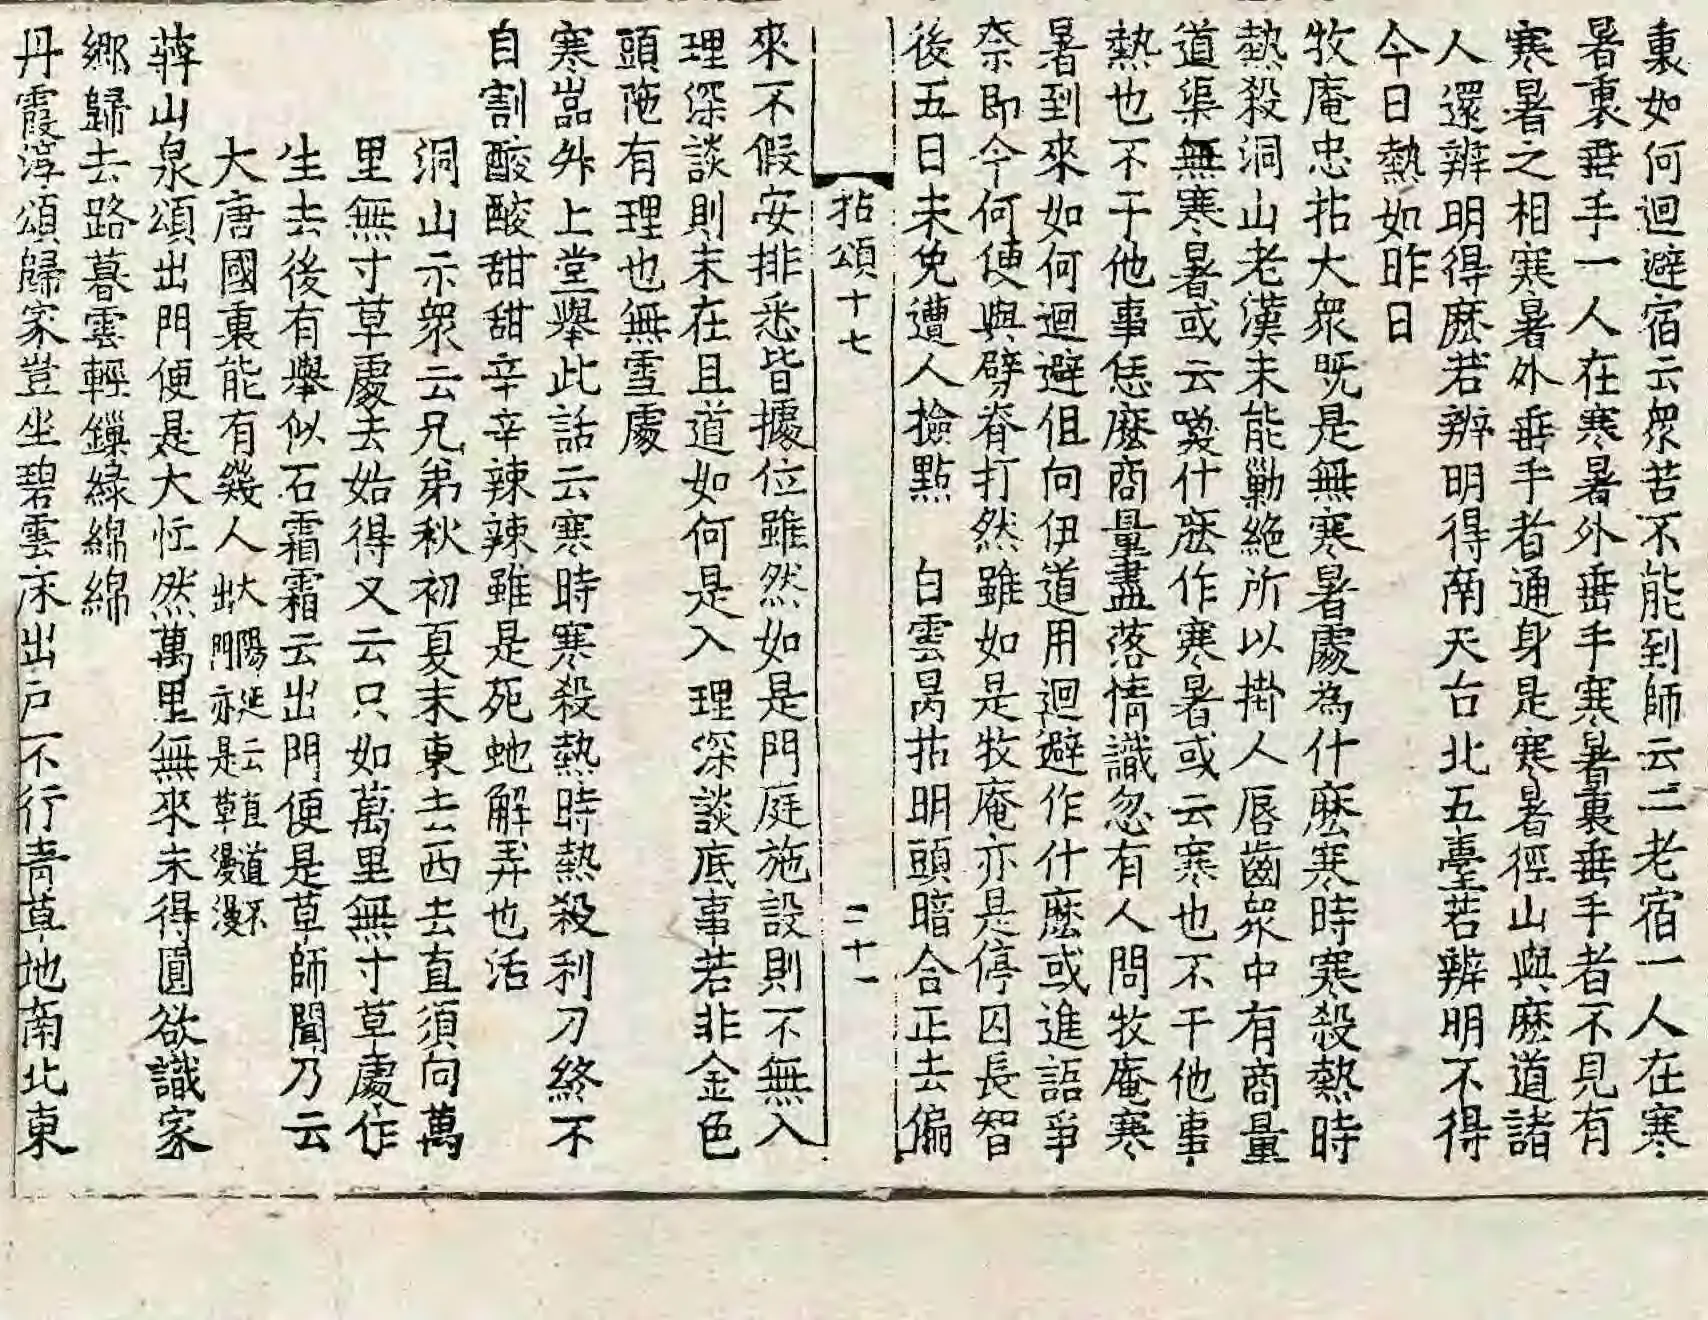 裏如何迴避宿云衆苦不能到師云二老宿一人在寒
暑裏垂手一人在寒暑外垂手寒暑裏垂手者不見有
寒暑之相寒暑外垂手者通身是寒暑徑山與麽道諸
人還辨明得麽若辨明得南天台北五臺若辨明不得
今日熱如昨日
牧庵忠拈大衆既是無寒暑處為什麽寒時寒殺熱時
熱殺洞山老漢未能勦絶所以掛人唇齒衆中有商量
道渠無寒暑或云喚什麽作寒暑或云寒也不干他事
熱也不干他事恁麽商量盡落情識忽有人問牧庵寒
暑到來如何迴避但向伊道用迴避作什麽或進語爭
奈即今何便與劈脊打然雖如是牧庵亦是停囚長智
後五日未免遭人撿點　白雲昺拈明頭暗合正去偏
拈頌十七　二十一
來不假安排悉皆據位雖然如是門庭施設則不無入
理深談則未在且道如何是入理深談底事若非金色
頭陁有理也無雪處
寒嵓外上堂舉此話云寒時寒殺熱時熱殺利刀終不
自割酸酸甜甜辛辛辣辣雖是死虵解弄也活
洞山示衆云兄弟秋初夏末東去西去直須向萬
里無寸草處去始得又云只如萬里無寸草處作
生去後有舉似石霜霜云出門便是草師聞乃云
大唐國裏能有幾人大陽延云直道不出門亦是草漫漫
蔣山泉頌出門便是大忙然萬里無來未得圓欲識家
鄉歸去路暮雲輕鏁緑綿綿
丹霞淳頌歸家豈坐碧雲床出戶不行青草地南北東